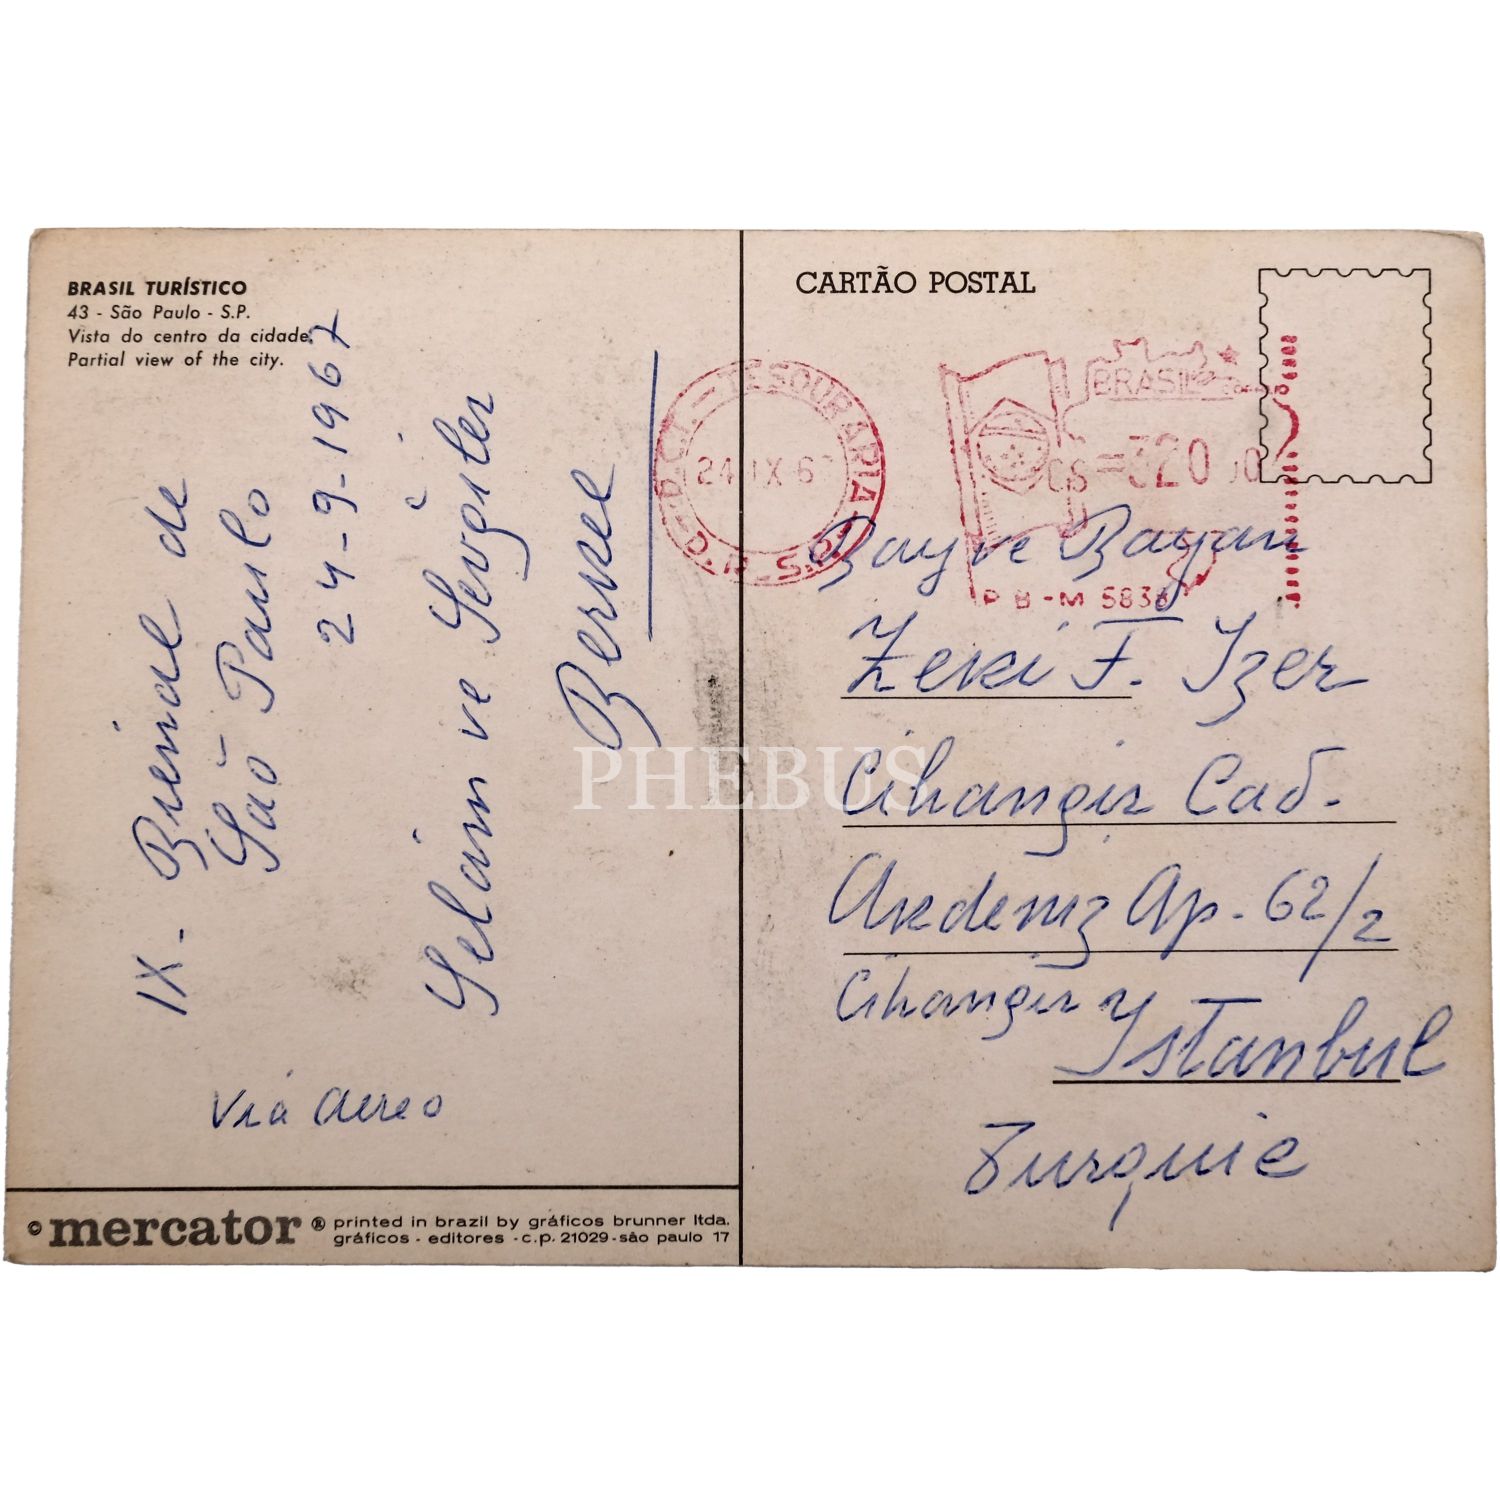 BRASIL TURÍSTICO
43 - São Paulo - S.P.
Vista do centro da cidade.
Partial view of the city.
IX. Bienal de
São Paulo
24-9-1967
Selâm ve Sevgiler
Berkel
Via aereo
© mercator ® printed in brazil by gráficos brunner ltda.
gráficos - editores - c.p. 21029 - são paulo 17
CARTÃO POSTAL
D.C.T. - TESOURARIA
24 IX 6
BRASIL
CR =320,00
P B - M 5836
Bay ve Bayan
Zeki F. Izer
Cihangir Cad.
Akdeniz Ap. 62/2
Cihangir
Istanbul
Turquie
PHEBUS